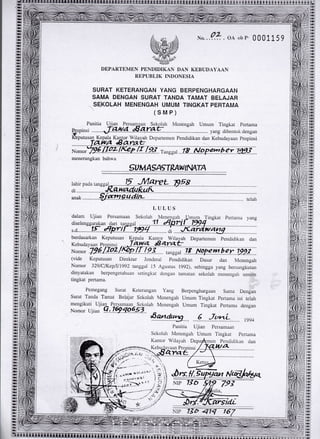 No. 02 OA ob P 0001159
DEPARTEMEN PENDIDIKAN DAN KEBUDAYAAN
REPUBLIK INDONESIA
SURAT KETERANGAN YANG BERPENGHARGAAN
SAMA DENGAN SURAT TANDA TAMAT BELAJAR
SEKOLAH MENENGAH UMUM TINGKAT PERTAMA
( S M P )
Panitia Ujian Persamaan Sekolah Menengah Umum Tingkat Pertama
Propinsi Jawa Barat yang dibentuk dengan
Keputusan Kepala Kantor Wilayah Departemen Pendidikan dan Kebudayaan Propinsi
Jawa Barat
Nomor 796/I02/Kep/I/93 Tanggal 18 Nopember 1993
menerangkan bahwa
SUMASASTRAWINATA
lahir pada tanggal 15 Maret 1958
di Rawadukuh
anak Sjamsudin telah
L U L U S
dalam Ujian Persamaan Sekolah Menengah Umum Tingkat Pertama yang
diselenggarakan dari tanggal 11 April 1994
s.d. 15 April 1994 di Karawang
berdasarkan Keputusan Kepala Kantor Wilayah Departemen Pendidikan dan
Kebudayaan Propinsi Jawa Barat
Nomor 796/I02/Kep/I/93 tanggal 18 Nopember 1993
(vide Keputusan Direktur Jenderal Pendidikan Dasar dan Menengah
Nomor 329/C/Kep/I/1992 tanggal 15 Agustus 1992), sehingga yang bersangkutan
dinyatakan berpengetahuan setingkat dengan tamatan sekolah menengah umum
tingkat pertama.
Pemegang Surat Keterangan Yang Berpenghargaan Sama Dengan
Surat Tanda Tamat Belajar Sekolah Menengah Umum Tingkat Pertama ini telah
mengikuti Ujian Persamaan Sekolah Menengah Umum Tingkat Pertama dengan
Nomor Ujian
Bandung 6 Juni 1994
Panitia Ujian Persamaan
Sekolah Menengah Umum Tingkat Pertama
Kantor Wilayah Departemen Pendidikan dan
Kebudayaan Propinsi Jawa
Barat
Ketua
Drs. H. Supyan
NIP 130 519 793
Drs. Karsidi
NIP 130 419 167